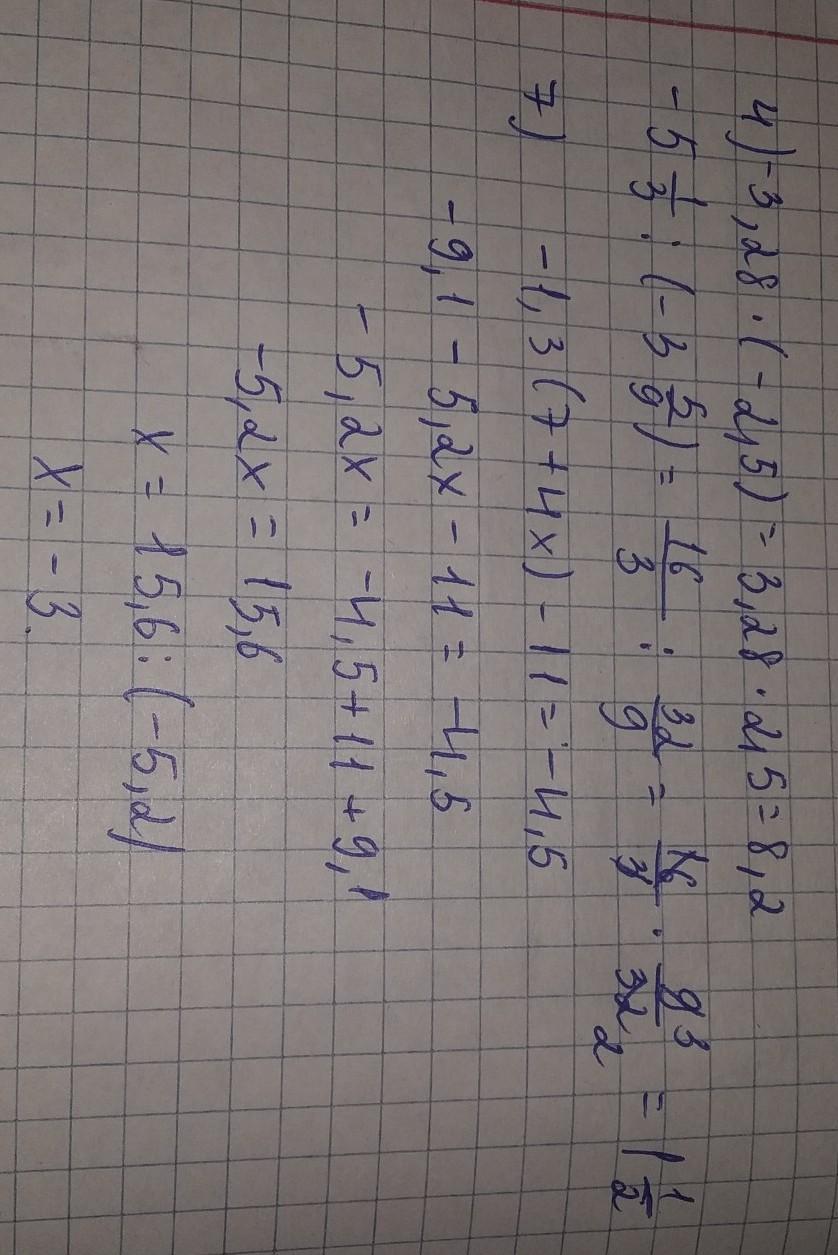 4) -3,28 · (-2,5) = 3,28 · 2,5 = 8,2
-5 1/3 : (-3 5/9) = 16/3 : 32/9 = 16/3 · 9 3/32 2 = 1 1/2
7) -1,3(7+4x) - 11 = -4,5
-9,1 - 5,2x - 11 = -4,5
-5,2x = -4,5 + 11 + 9,1
-5,2x = 15,6
x = 15,6 : (-5,2)
x = -3.